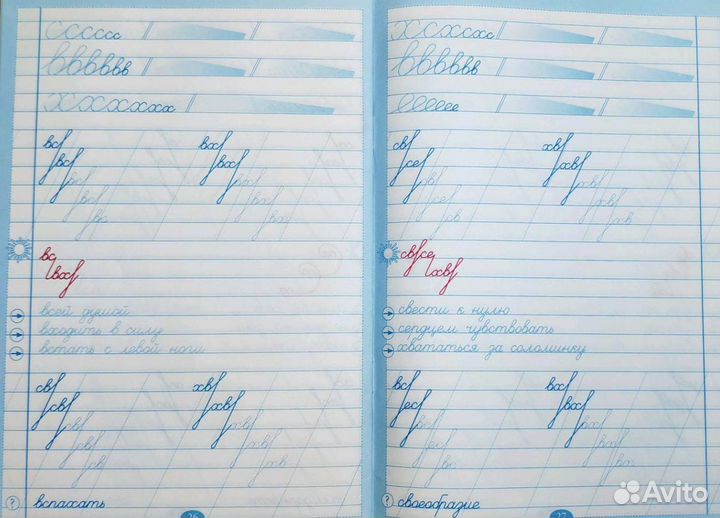 сссссс
вввввв
хххххххх
вс вх
вс вх
вс вх
вс вх
вс вх
вс
вх
всей душой
входить в силу
встать с левой ноги
св хв
св хв
св хв
св хв
св хв
? вспахать
26
хсхсхс
вввввв
ееееее
св хв
се хв
св хв
се хв
св хв
св се
хв
свести к нулю
сердцем чувствовать
хвататься за соломинку
вс вх
ес вх
вс вх
ес вх
вс вх
? своеобразие
27
Avito